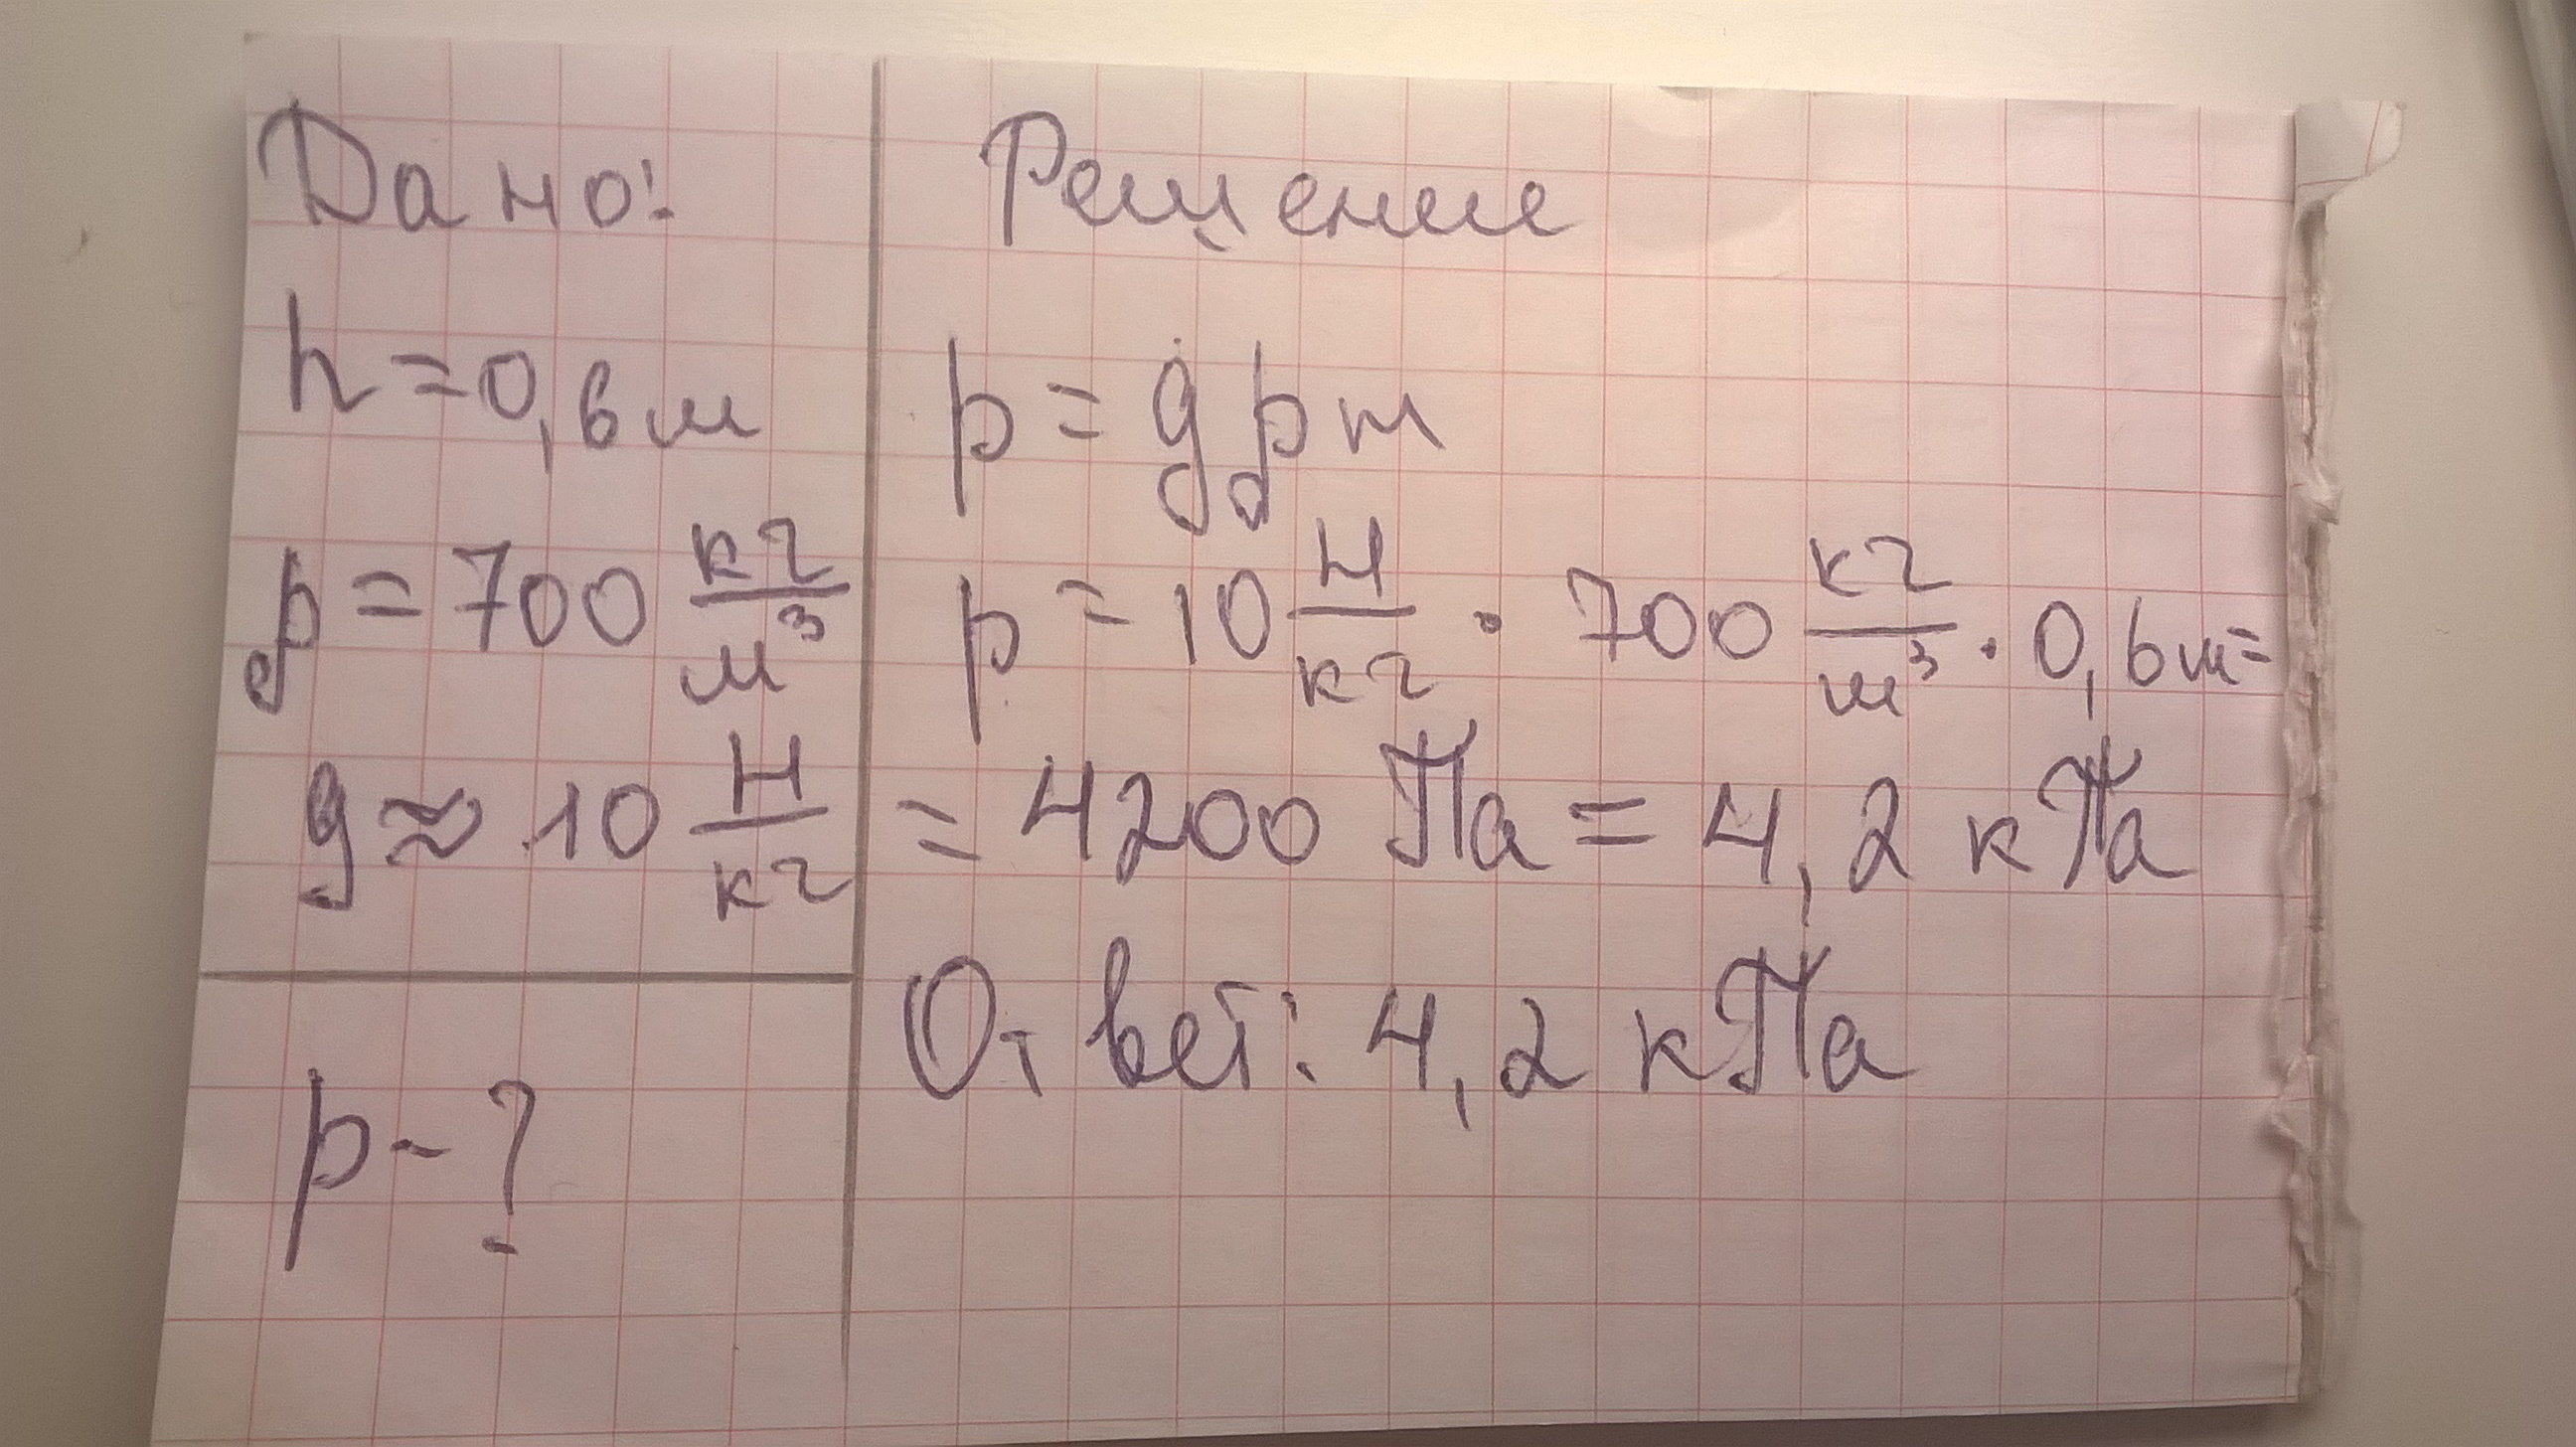 Дано:
h = 0,6 м
ρ = 700 кг/м³
g ≈ 10 Н/кг
p - ?
Решение
p = gρh
p = 10 Н/кг · 700 кг/м³ · 0,6 м =
= 4200 Па = 4,2 кПа
Ответ: 4,2 кПа